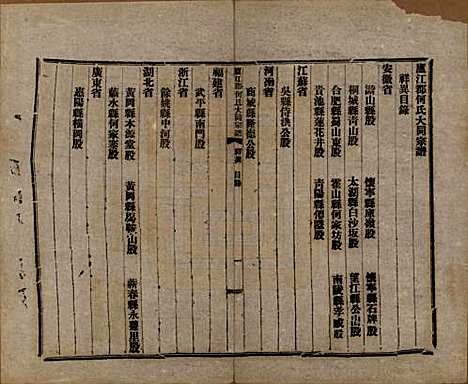 廬江郡何氏大同宗譜
祥異目錄
安徽省
潛山縣股 懷寧縣廣嶺股 懷寧縣石牌股
桐城縣青山股 太湖縣白沙坂股 望江縣公山股
合肥縣蜀山東股 霍山縣何家坊股 南陵縣孝感股
貴池縣蓮花井股 青陽縣股
江蘇省
吳縣侍洪公股
河南省
商城縣隆公股
廬江郡何氏大同宗譜 目錄 一
福建省
武平縣南門股
浙江省
餘姚縣中河股
湖北省
黃岡縣本源堂股 黃岡縣馬鞍山股 蘄春縣永豐里股
蘄水縣何家寨股
廣東省
惠陽縣橫岡股